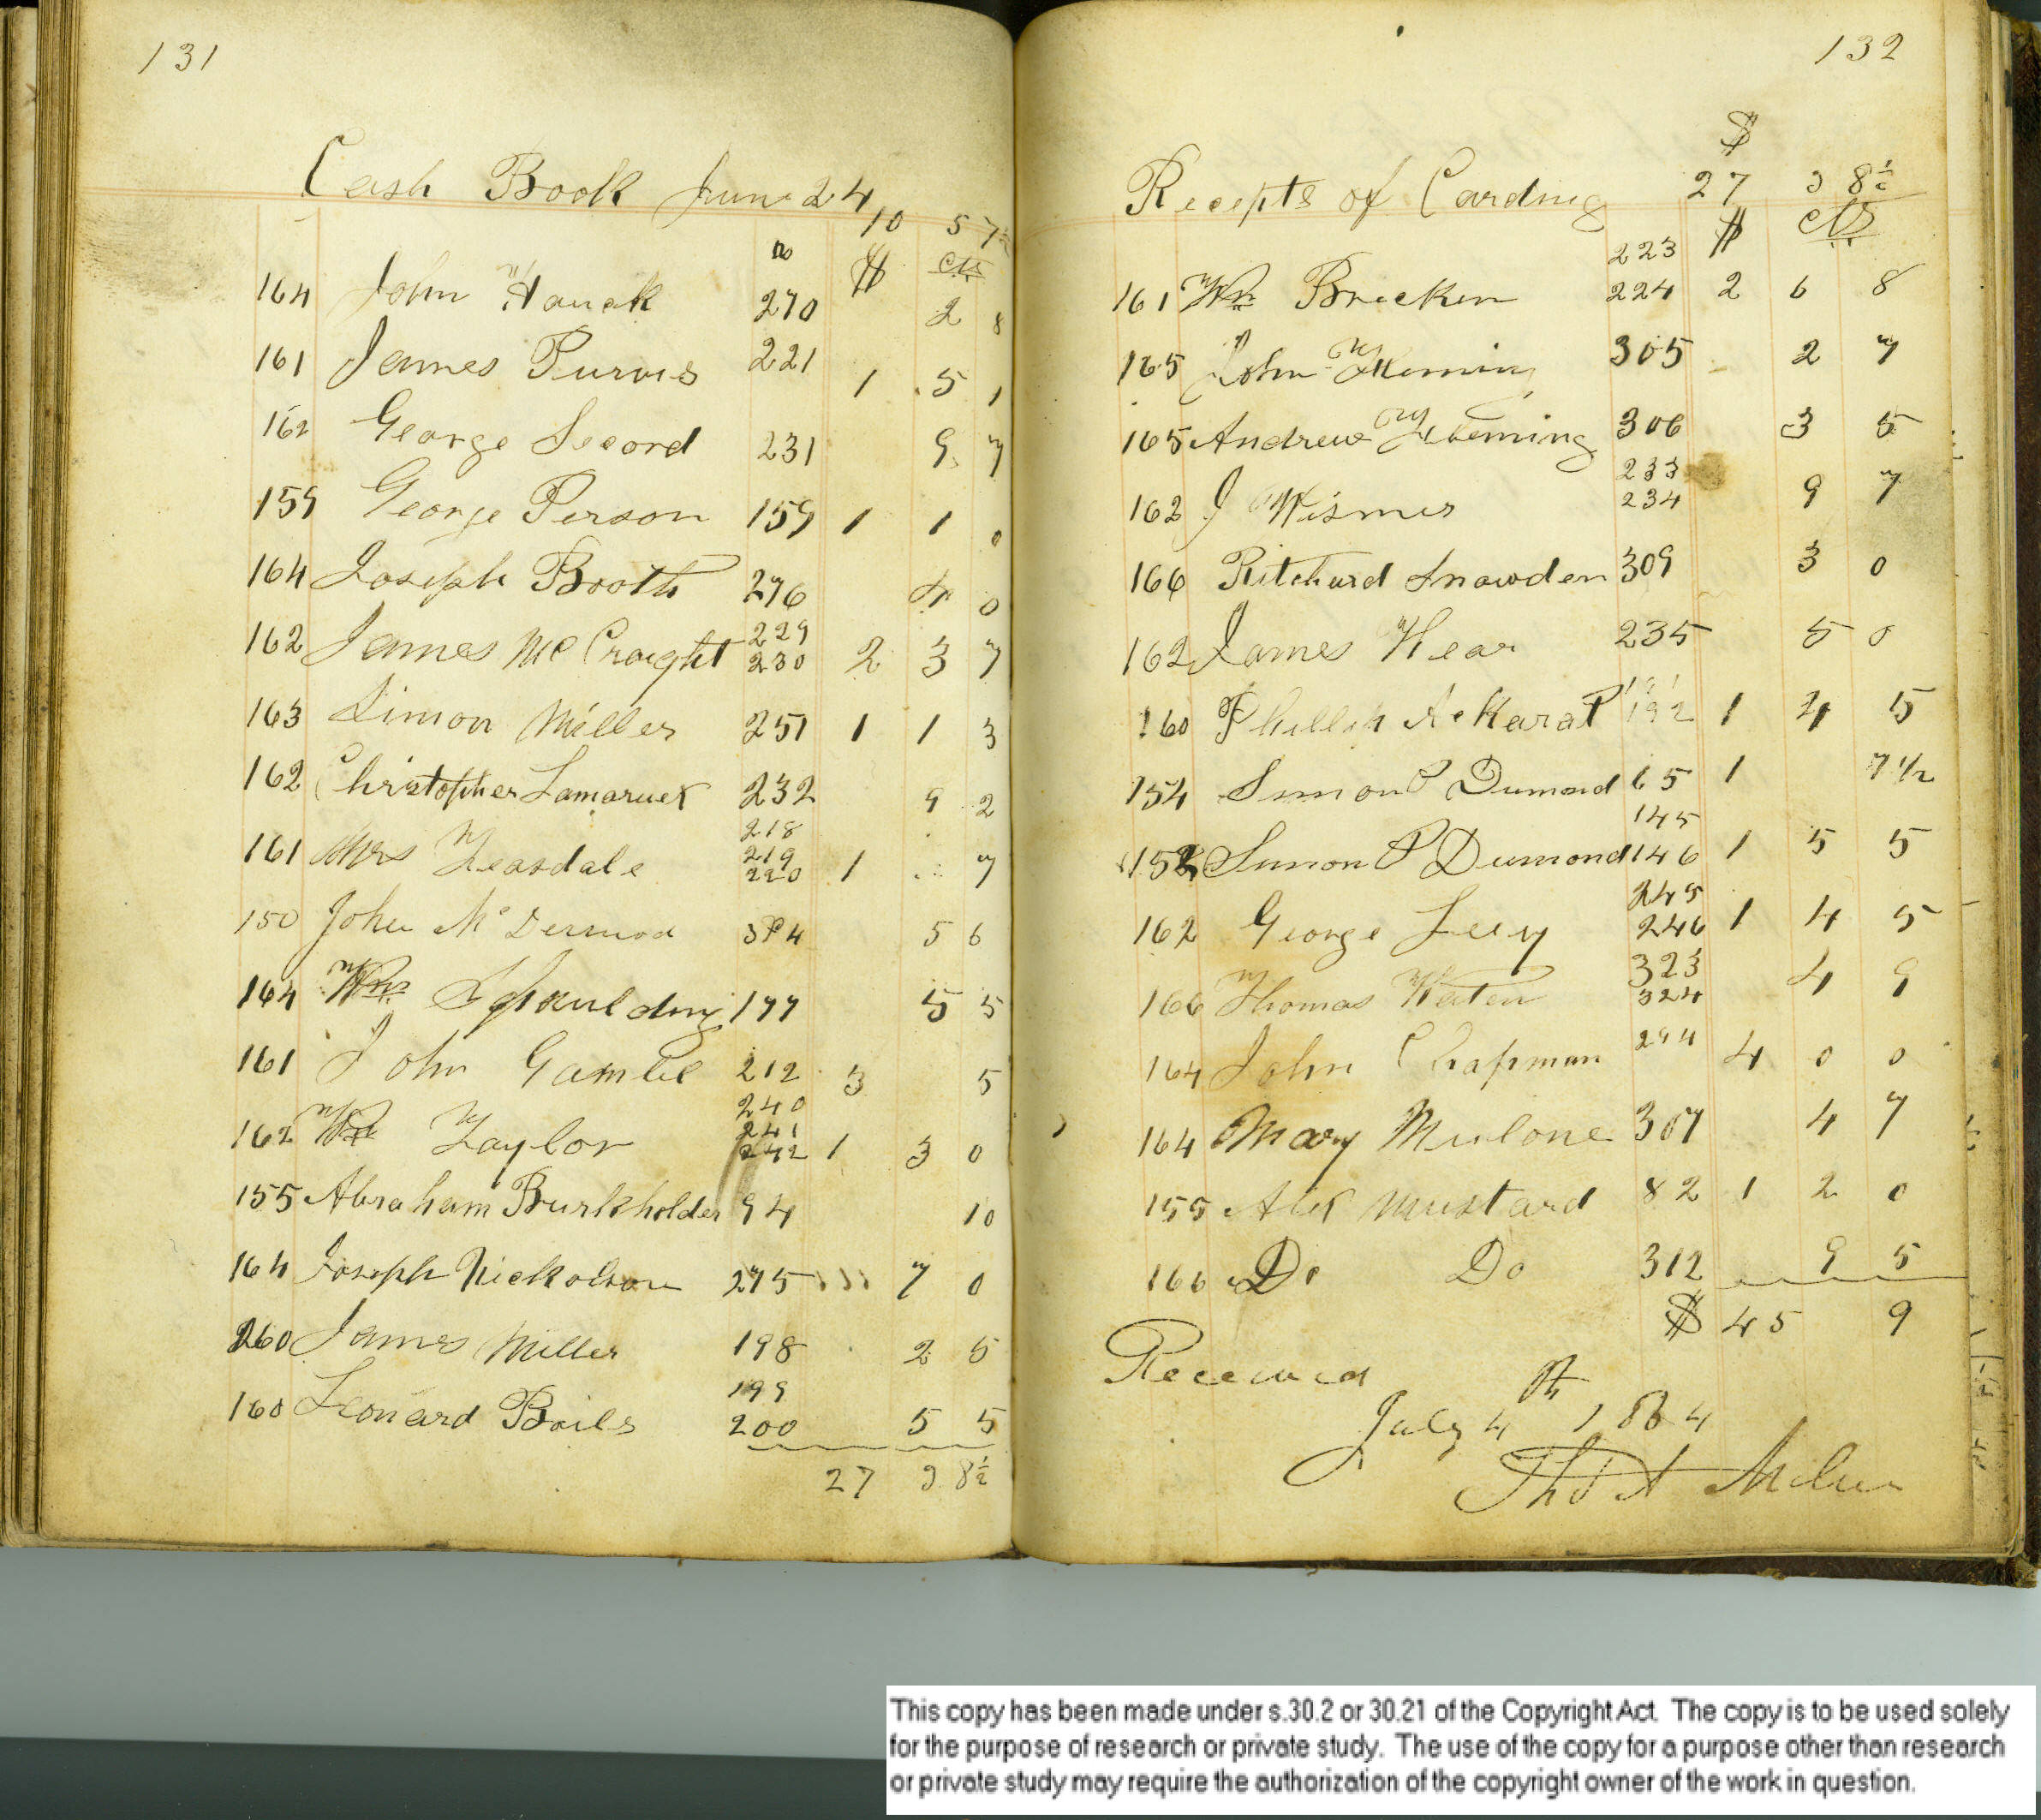 131
Cash Book June 24
10 57½
no $ cts
164 John Houck 270 2 8
161 James Purvis 221 1 5 1
162 George Secord 231 9 7
159 George Person 159 1 1 0
164 Joseph Booth 276 4 0
162 James McCraight 229 230 2 3 7
163 Simon Miller 251 1 1 3
162 Christopher Lamaruex 232 9 2
161 Mrs Teasdale 218 219 220 1 7
150 John McDermod 5 6
164 Wm Spaulding 177 5 5
161 John Gamble 212 3 5
162 Wm Taylor 240 241 242 1 3 0
155 Abraham Burkholder 94 10
164 Joseph Nickolson 275 7 0
260 James Miller 198 2 5
160 Leonard Boils 199 200 5 5
27 3 8½
132
$
Recepts of Carding 27 3 8½
$ cts
161 Wm Brecken 223 224 2 6 8
165 John Fleming 305 2 7
165 Andrew Fleming 306 3 5
162 J Wismer 233 234 9 7
166 Ritchard Snowden 309 3 0
162 James Wear 235 5 0
160 Phillip Ackarat 191 192 1 4 5
154 Simon P Dumond 65 1 7 1/2
152 Simon P Dumond 145 146 1 5 5
162 George Seey 245 246 1 4 5
166 Thomas Waten 323 324 4 9
164 John Chapman 294 4 0 0
164 Mary Mulone 307 4 7
155 Alex Mustard 82 1 2 0
166 Do Do 312 9 5
$ 45 9
Received
July 4th 1864
Thos A Milne
This copy has been made under s.30.2 or 30.21 of the Copyright Act. The copy is to be used solely
for the purpose of research or private study. The use of the copy for a purpose other than research
or private study may require the authorization of the copyright owner of the work in question.